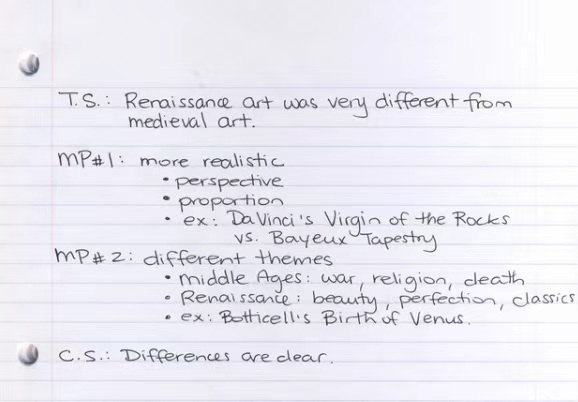 T.S.: Renaissance art was very different from
medieval art.
MP#1: more realistic
• perspective
• proportion
• ex: DaVinci's Virgin of the Rocks
vs. Bayeux Tapestry
MP#2: different themes
• Middle Ages: war, religion, death
• Renaissance: beauty, perfection, classics
• ex: Botticell's Birth of Venus.
C.S.: Differences are clear.